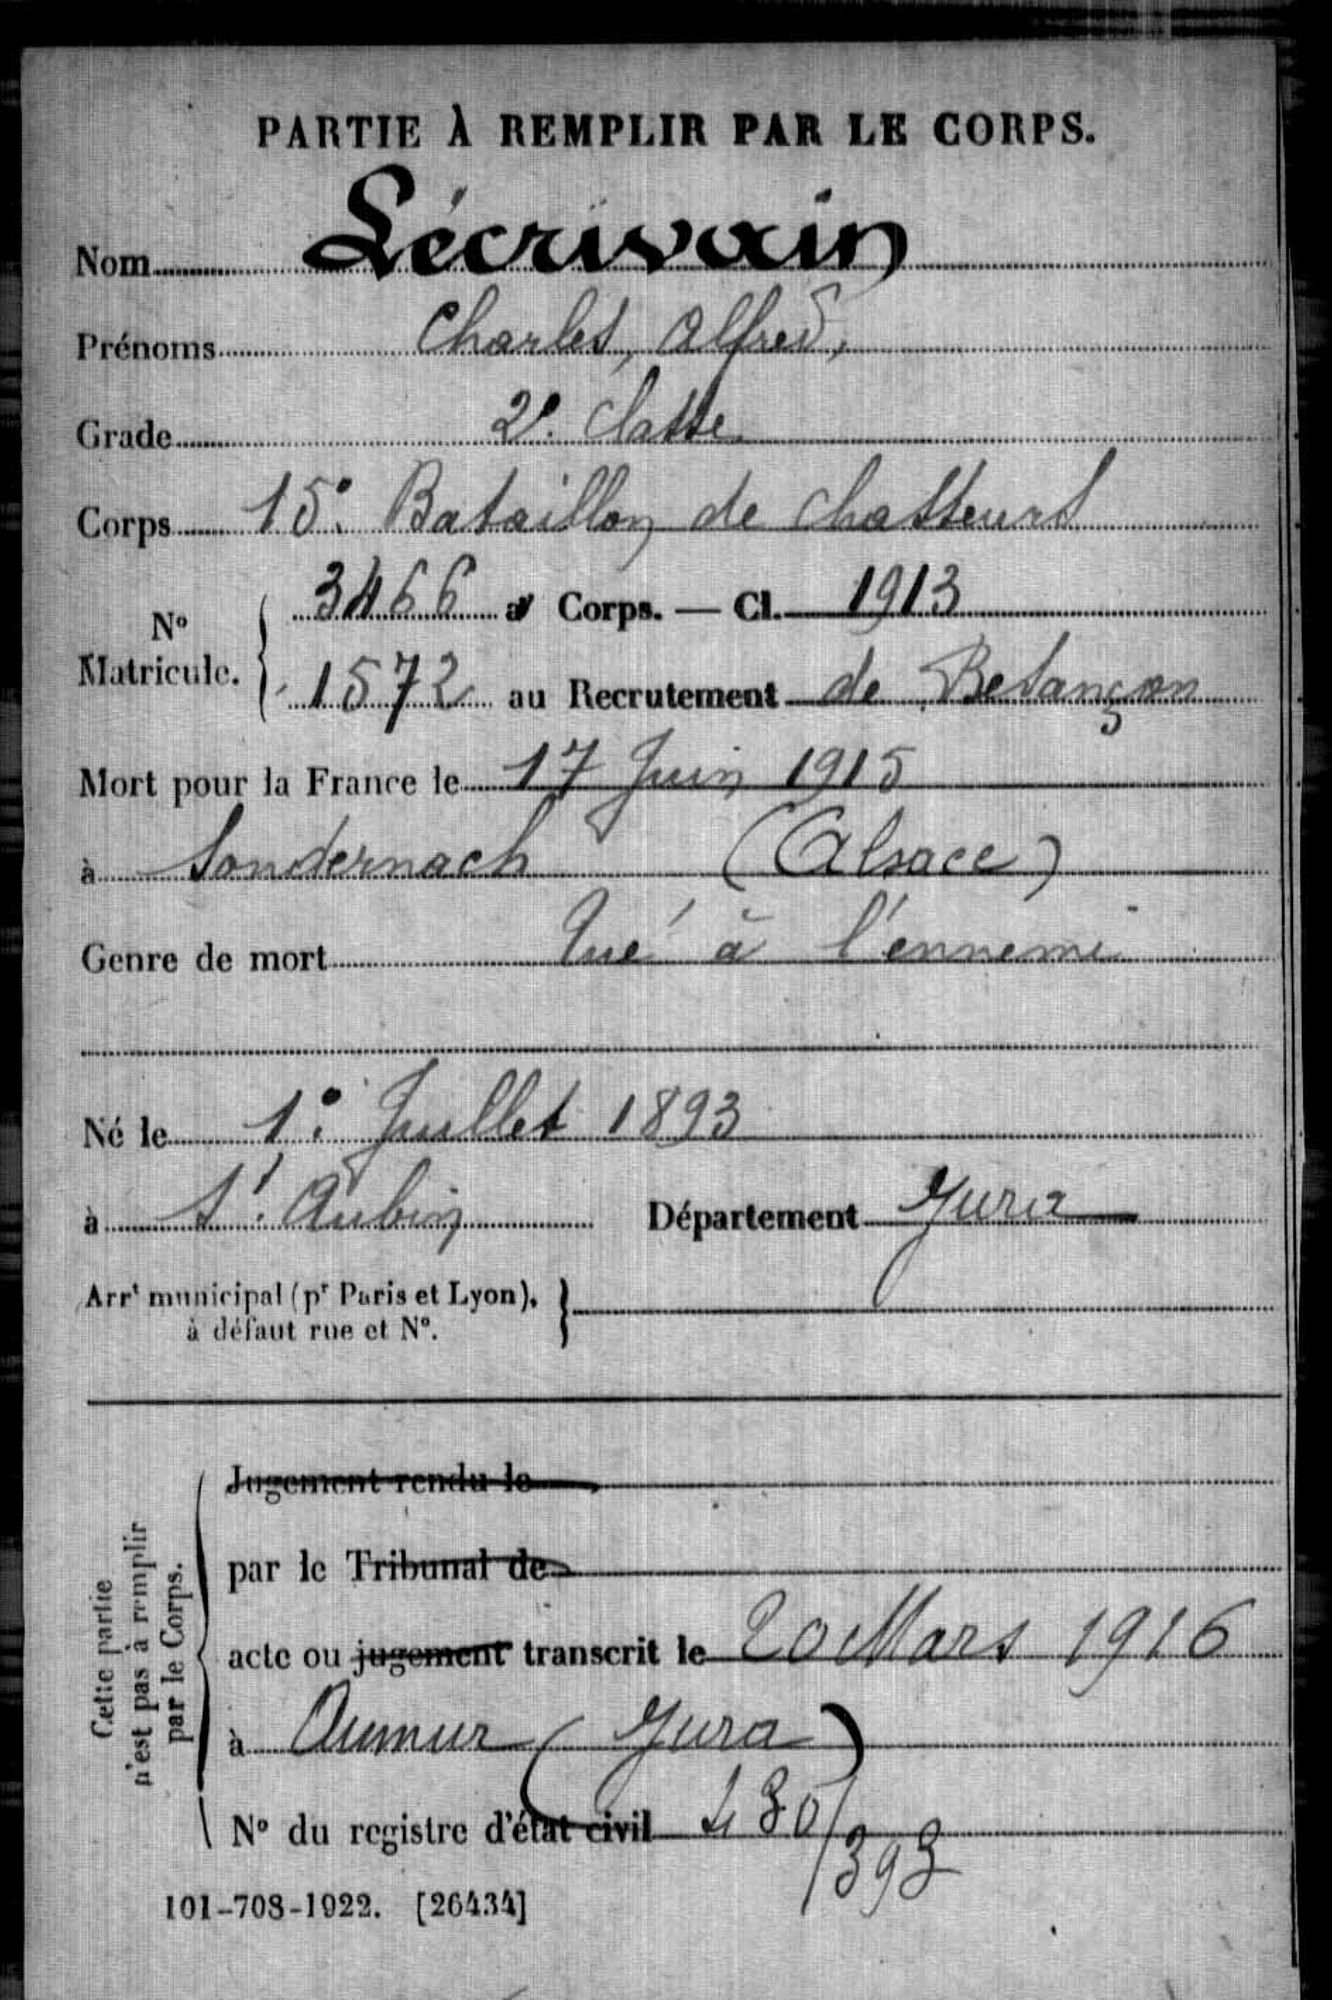 PARTIE À REMPLIR PAR LE CORPS.
Nom Lécrivain
Prénoms Charles, Alfred,
Grade 2e. Classe
Corps 15e. Bataillon de Chasseurs
No Matricule. { 3466 au Corps. — Cl. 1913
1572 au Recrutement de Besançon
Mort pour la France le 17 Juin 1915
à Sondernach (Alsace)
Genre de mort Tué à l'ennemi
Né le 1er Juillet 1893
à St. Aubin Département Jura
Arrt municipal (pr Paris et Lyon), }
à défaut rue et No.
Cette partie
n'est pas à remplir
par le Corps.
Jugement rendu le
par le Tribunal de
acte ou jugement transcrit le 20 Mars 1916
à Aumur (Jura)
No du registre d'état civil 480/393
101-708-1922. [26434]